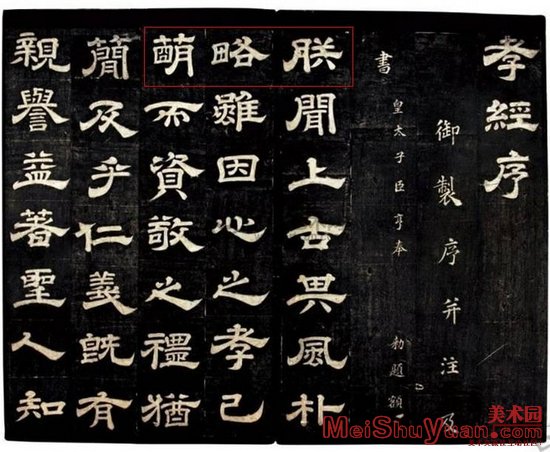 孝經序
御製序并注及
書 皇太子臣亨奉 勑題額
朕聞上古其風朴
略雖因心之孝已
萌而資敬之禮猶
簡及乎仁義既有
親譽益著聖人知
美术园
MeiShuYuan.com